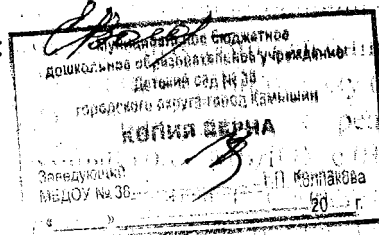 Муниципальное бюджетное
дошкольное образовательное учреждение
Детский сад № 38
городского округа город Камышин
КОПИЯ ВЕРНА
Заведующий
МБДОУ № 38 Колпакова
«____»____ 20 г.